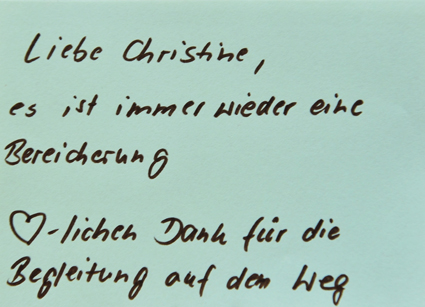 Liebe Christine,
es ist immer wieder eine
Bereicherung
♡-lichen Dank für die
Begleitung auf dem Weg